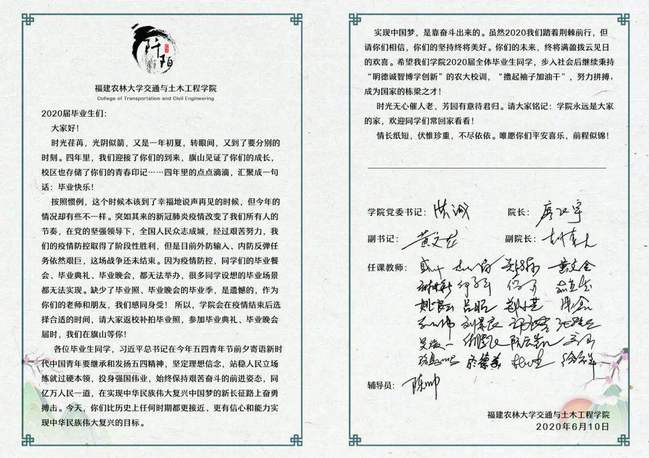 福建农林大学交通与土木工程学院
College of Transportation and Civil Engineering
2020届毕业生们：
大家好！
时光荏苒，光阴似箭，又是一年初夏，转眼间，又到了要分别的
时刻。四年里，我们迎接了你们的到来，旗山见证了你们的成长，
校区也存储了你们的青春印记……四年里的点点滴滴，汇聚成一句
话：毕业快乐！
按照惯例，这个时候本该到了幸福地说声再见的时候，但今年的
情况却有些不一样。突如其来的新冠肺炎疫情改变了我们所有人的
节奏，在党的坚强领导下，全国人民众志成城，经过艰苦努力，我
们的疫情防控取得了阶段性胜利，但是目前外防输入、内防反弹任
务依然艰巨，这场战争还未结束。因为疫情防控，同学们的毕业餐
会、毕业典礼、毕业晚会，都无法举办，很多同学设想的毕业场景
都无法实现。缺少了毕业照、毕业晚会的毕业季，是遗憾的，作为
你们的老师和朋友，我们感同身受！所以，学院会在疫情结束后选
择合适的时间，请大家返校补拍毕业照，参加毕业典礼、毕业晚会
届时，我们在旗山等你！
各位毕业生同学，习近平总书记在今年五四青年节前夕寄语新时
代中国青年要继承和发扬五四精神，坚定理想信念，站稳人民立场
练就过硬本领，投身强国伟业，始终保持艰苦奋斗的前进姿态，同
亿万人民一道，在实现中华民族伟大复兴中国梦的新长征路上奋勇
搏击。今天，你们比历史上任何时期都更接近、更有信心和能力实
现中华民族伟大复兴的目标。
实现中国梦，是靠奋斗出来的。虽然2020我们踏着荆棘前行，但
请你们相信，你们的坚持终将美好。你们的未来，终将满盈拨云见日
的欢喜。希望我们学院2020全体毕业生同学，步入社会后继续秉持
“明德诚智博学创新”的农大校训，“撸起袖子加油干”，努力拼搏，
成为国家的栋梁之才！
时光无心催人老，芳园有意待君归。请大家铭记：学院永远是大家
的家，欢迎同学们常回家看看！
情长纸短，伏惟珍重，不尽依依。唯愿你们平安喜乐，前程似锦！
学院党委书记：洪诚 院长：
副书记： 副院长：
任课教师：
辅导员：陈帅
福建农林大学交通与土木工程学院
2020年6月10日